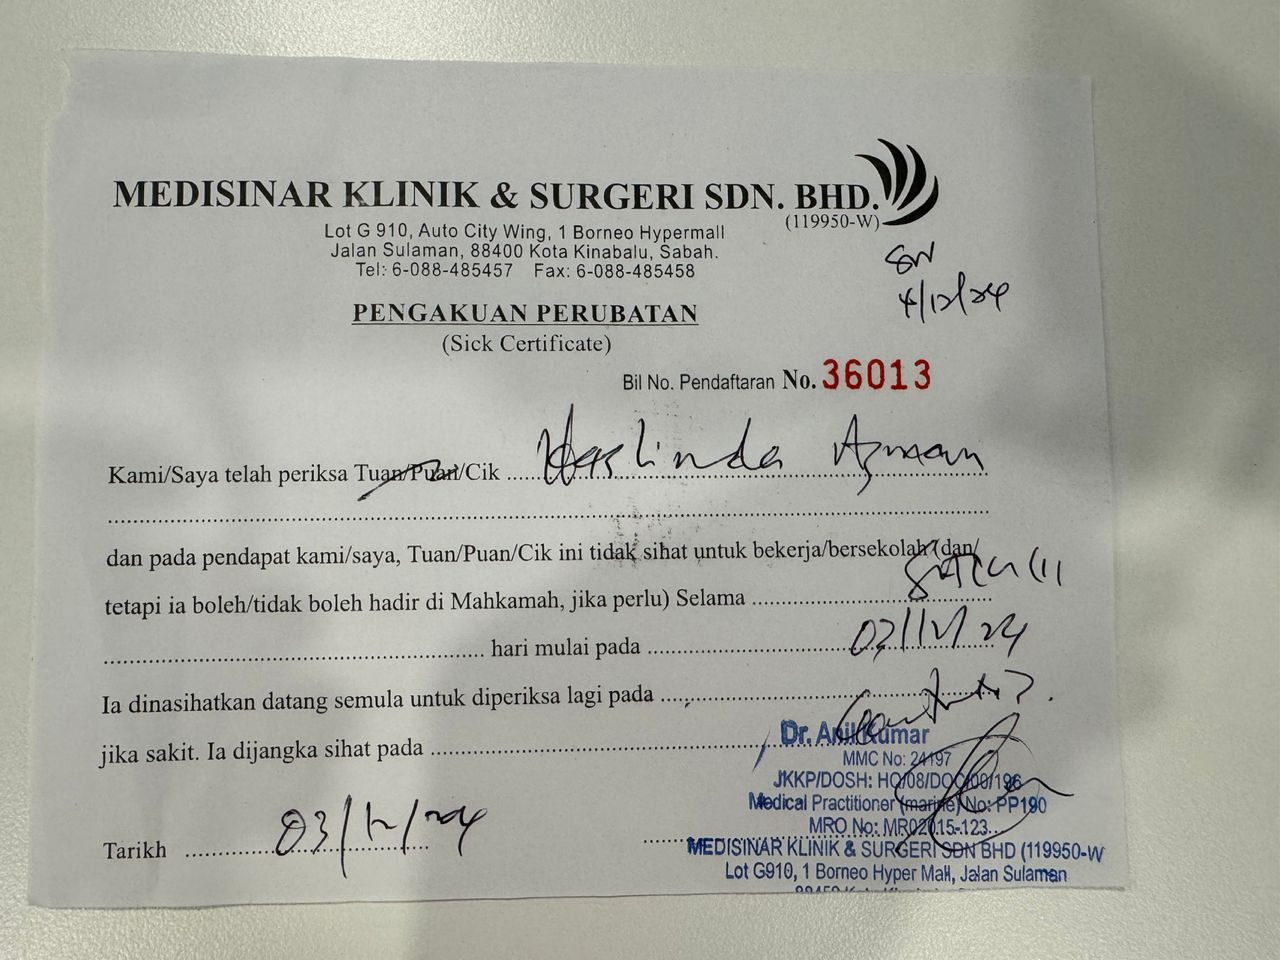 MEDISINAR KLINIK & SURGERI SDN. BHD.
(119950-W)
Lot G 910, Auto City Wing, 1 Borneo Hypermall
Jalan Sulaman, 88400 Kota Kinabalu, Sabah.
Tel: 6-088-485457 Fax: 6-088-485458
4/12/24
PENGAKUAN PERUBATAN
(Sick Certificate)
Bil No. Pendaftaran No. 36013
Kami/Saya telah periksa Tuan/Puan/Cik Haslinda Azman
dan pada pendapat kami/saya, Tuan/Puan/Cik ini tidak sihat untuk bekerja/bersekolah (dan/
tetapi ia boleh/tidak boleh hadir di Mahkamah, jika perlu) Selama
hari mulai pada 03/12/24
Ia dinasihatkan datang semula untuk diperiksa lagi pada
jika sakit. Ia dijangka sihat pada
Dr. Anil Kumar
MMC No: 24197
JKKP/DOSH: HQ/08/DOC/00/196
Medical Practitioner (marine) No: PP190
MRO No: MR02015-123
Tarikh 03/12/24
MEDISINAR KLINIK & SURGERI SDN BHD (119950-W
Lot G910, 1 Borneo Hyper Mall, Jalan Sulaman